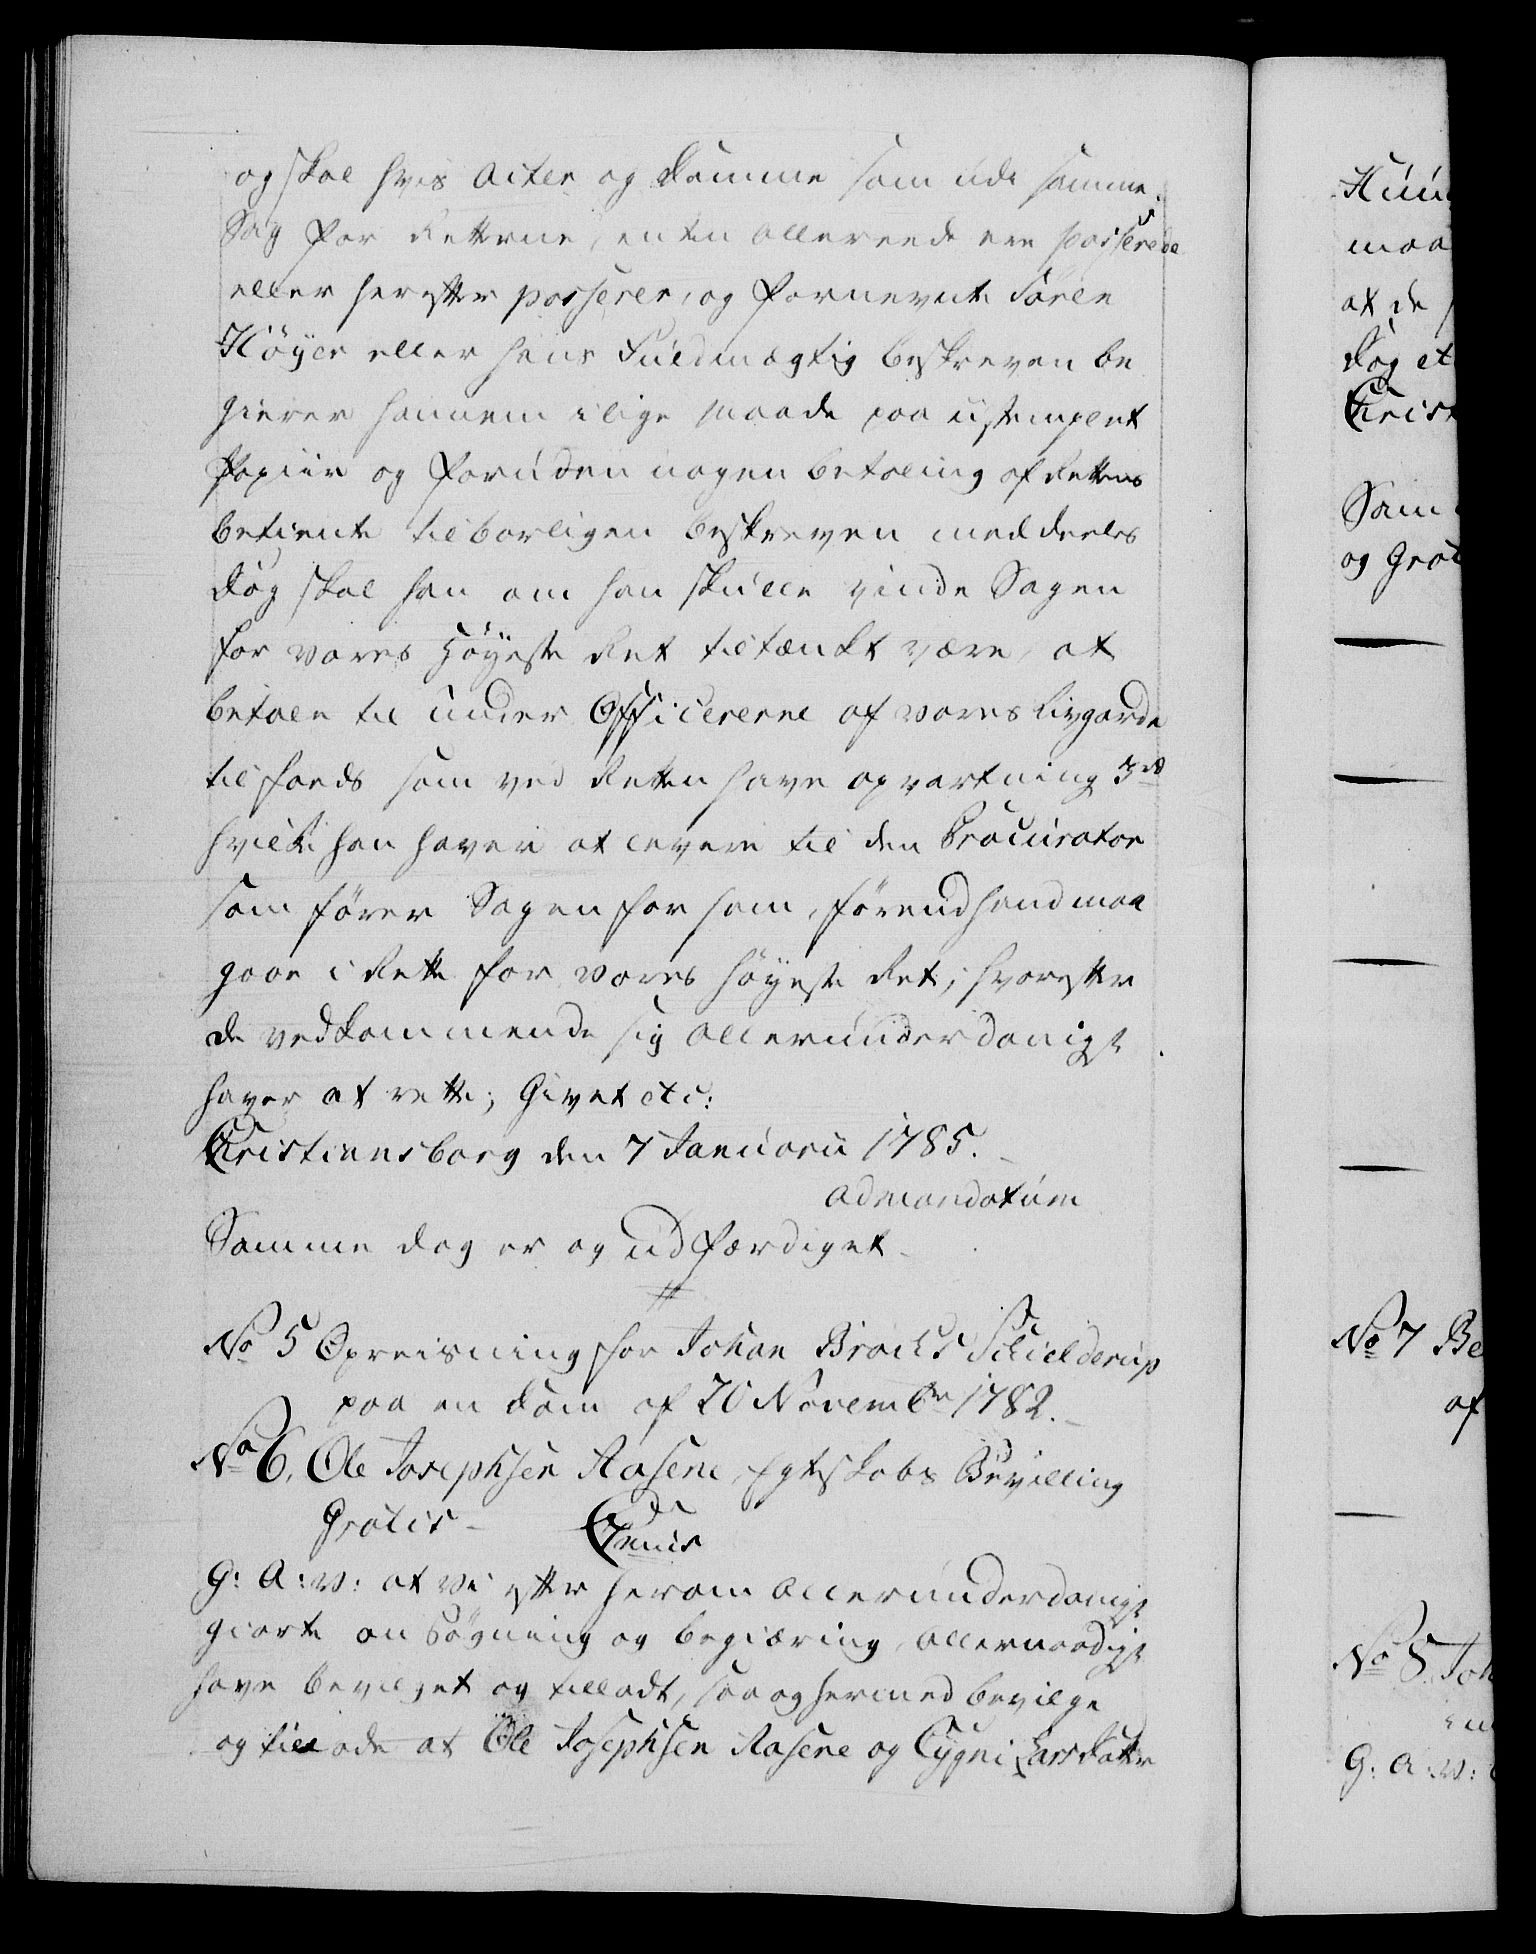 og skal hvis Acter og Domme som udi samme
Sag for Retterne, enten allereede ere passerede
eller herefter passerer, og fornevnte Søren
Høyer eller hans Fuldmægtig beskreven be
gierer hannem i lige Maade paa ustemplet
Papiir og foruden nogen betaling af Rettens
betiente tilbørligen beskreven meddeeles
dog skal han om han skulle vinde Sagen
for vores Høyeste Ret tiltænkt være, at
betale til under Officererne af vores Livgarde
til foeds som ved Retten have opvartning 3 rd
hvilke han haver at levere til den Procurator
som fører Sagen for ham, førend hand maa
gaae i Rette for vores høyeste Ret; hvorefter
de vedkommende sig allerunderdanigst
haver at rette; Givet etc:
Christiansborg den 7 Januarii 1785.
ad mandatum
Samme dag er og udfærdiget
No 5 Opreisning for Johan Brochs Schielderup
paa en Dom af 20 Novembr 1782.
No 6. Ole Josephsen Rasene Egteskabs Bevilling
Gratis
G: A: V: at vi efter herom allerunderdanigst
giorte ansøgning og begiæring, allernaadigst
have bevilget og tilladt, saa og hermed bevilge
og tillade at Ole Josephsen Rasene og Sygni Larsdatter
Huu
maa
at de
dog et
Chris
Sam
og Grat
No 7 Be
af
No 8 Joh
G: A: V: